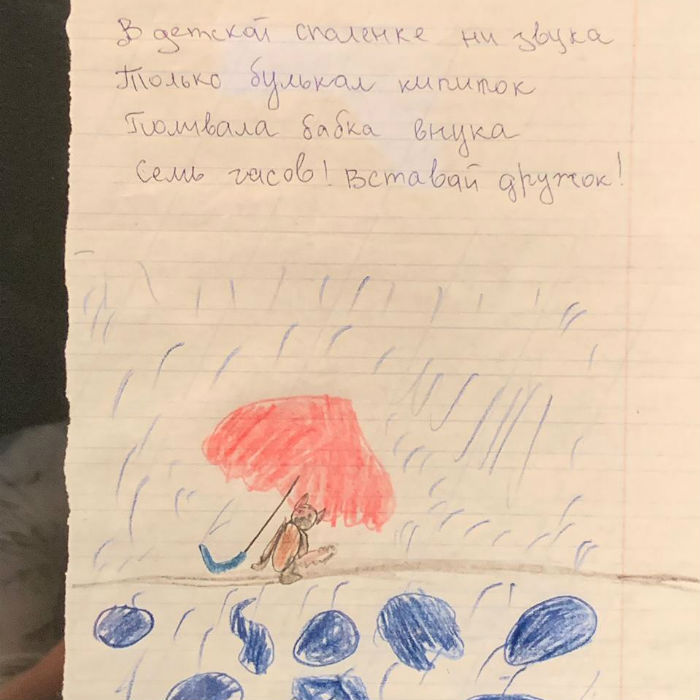 В детской спаленке ни звука
Только булькал кипиток
Поливала бабка внука
Семь часов! Вставай дружок!